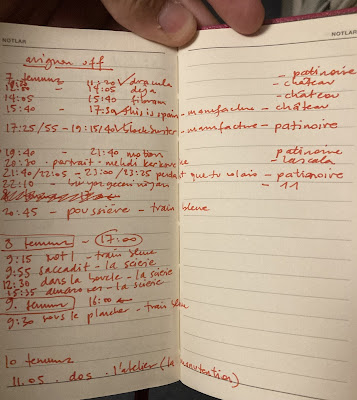 NOTLAR
NOTLAR
avignon off
7 temmuz - patinoire
- 11:20 ✓ dracula - château
- 14:05 deja - château
14:05 15:40
15:40 - 17:30 this is spain - manufacture - château
17:25/55 - 19:15/40 blockbuster - manufacture - patinoire
19:40 - 21:40 motion patinoire
20:30 - portrait - mehdi - lascala
21:40/22:05 - 23:00/23:25 pendant que tu volais - patinoire
22:10 - - 11
20:45 - poussière - train bleue
8 temmuz - 17:00
9:15 not 1 - train bleue
9:55 saccadit - la scierie
12:30 dans la boucle - la scierie
15:35 - la scierie
9. temmuz 16:00
9:30 sous le plancher - train bleue
10 temmuz
11.05 . dos . l'atelier (la manutention)